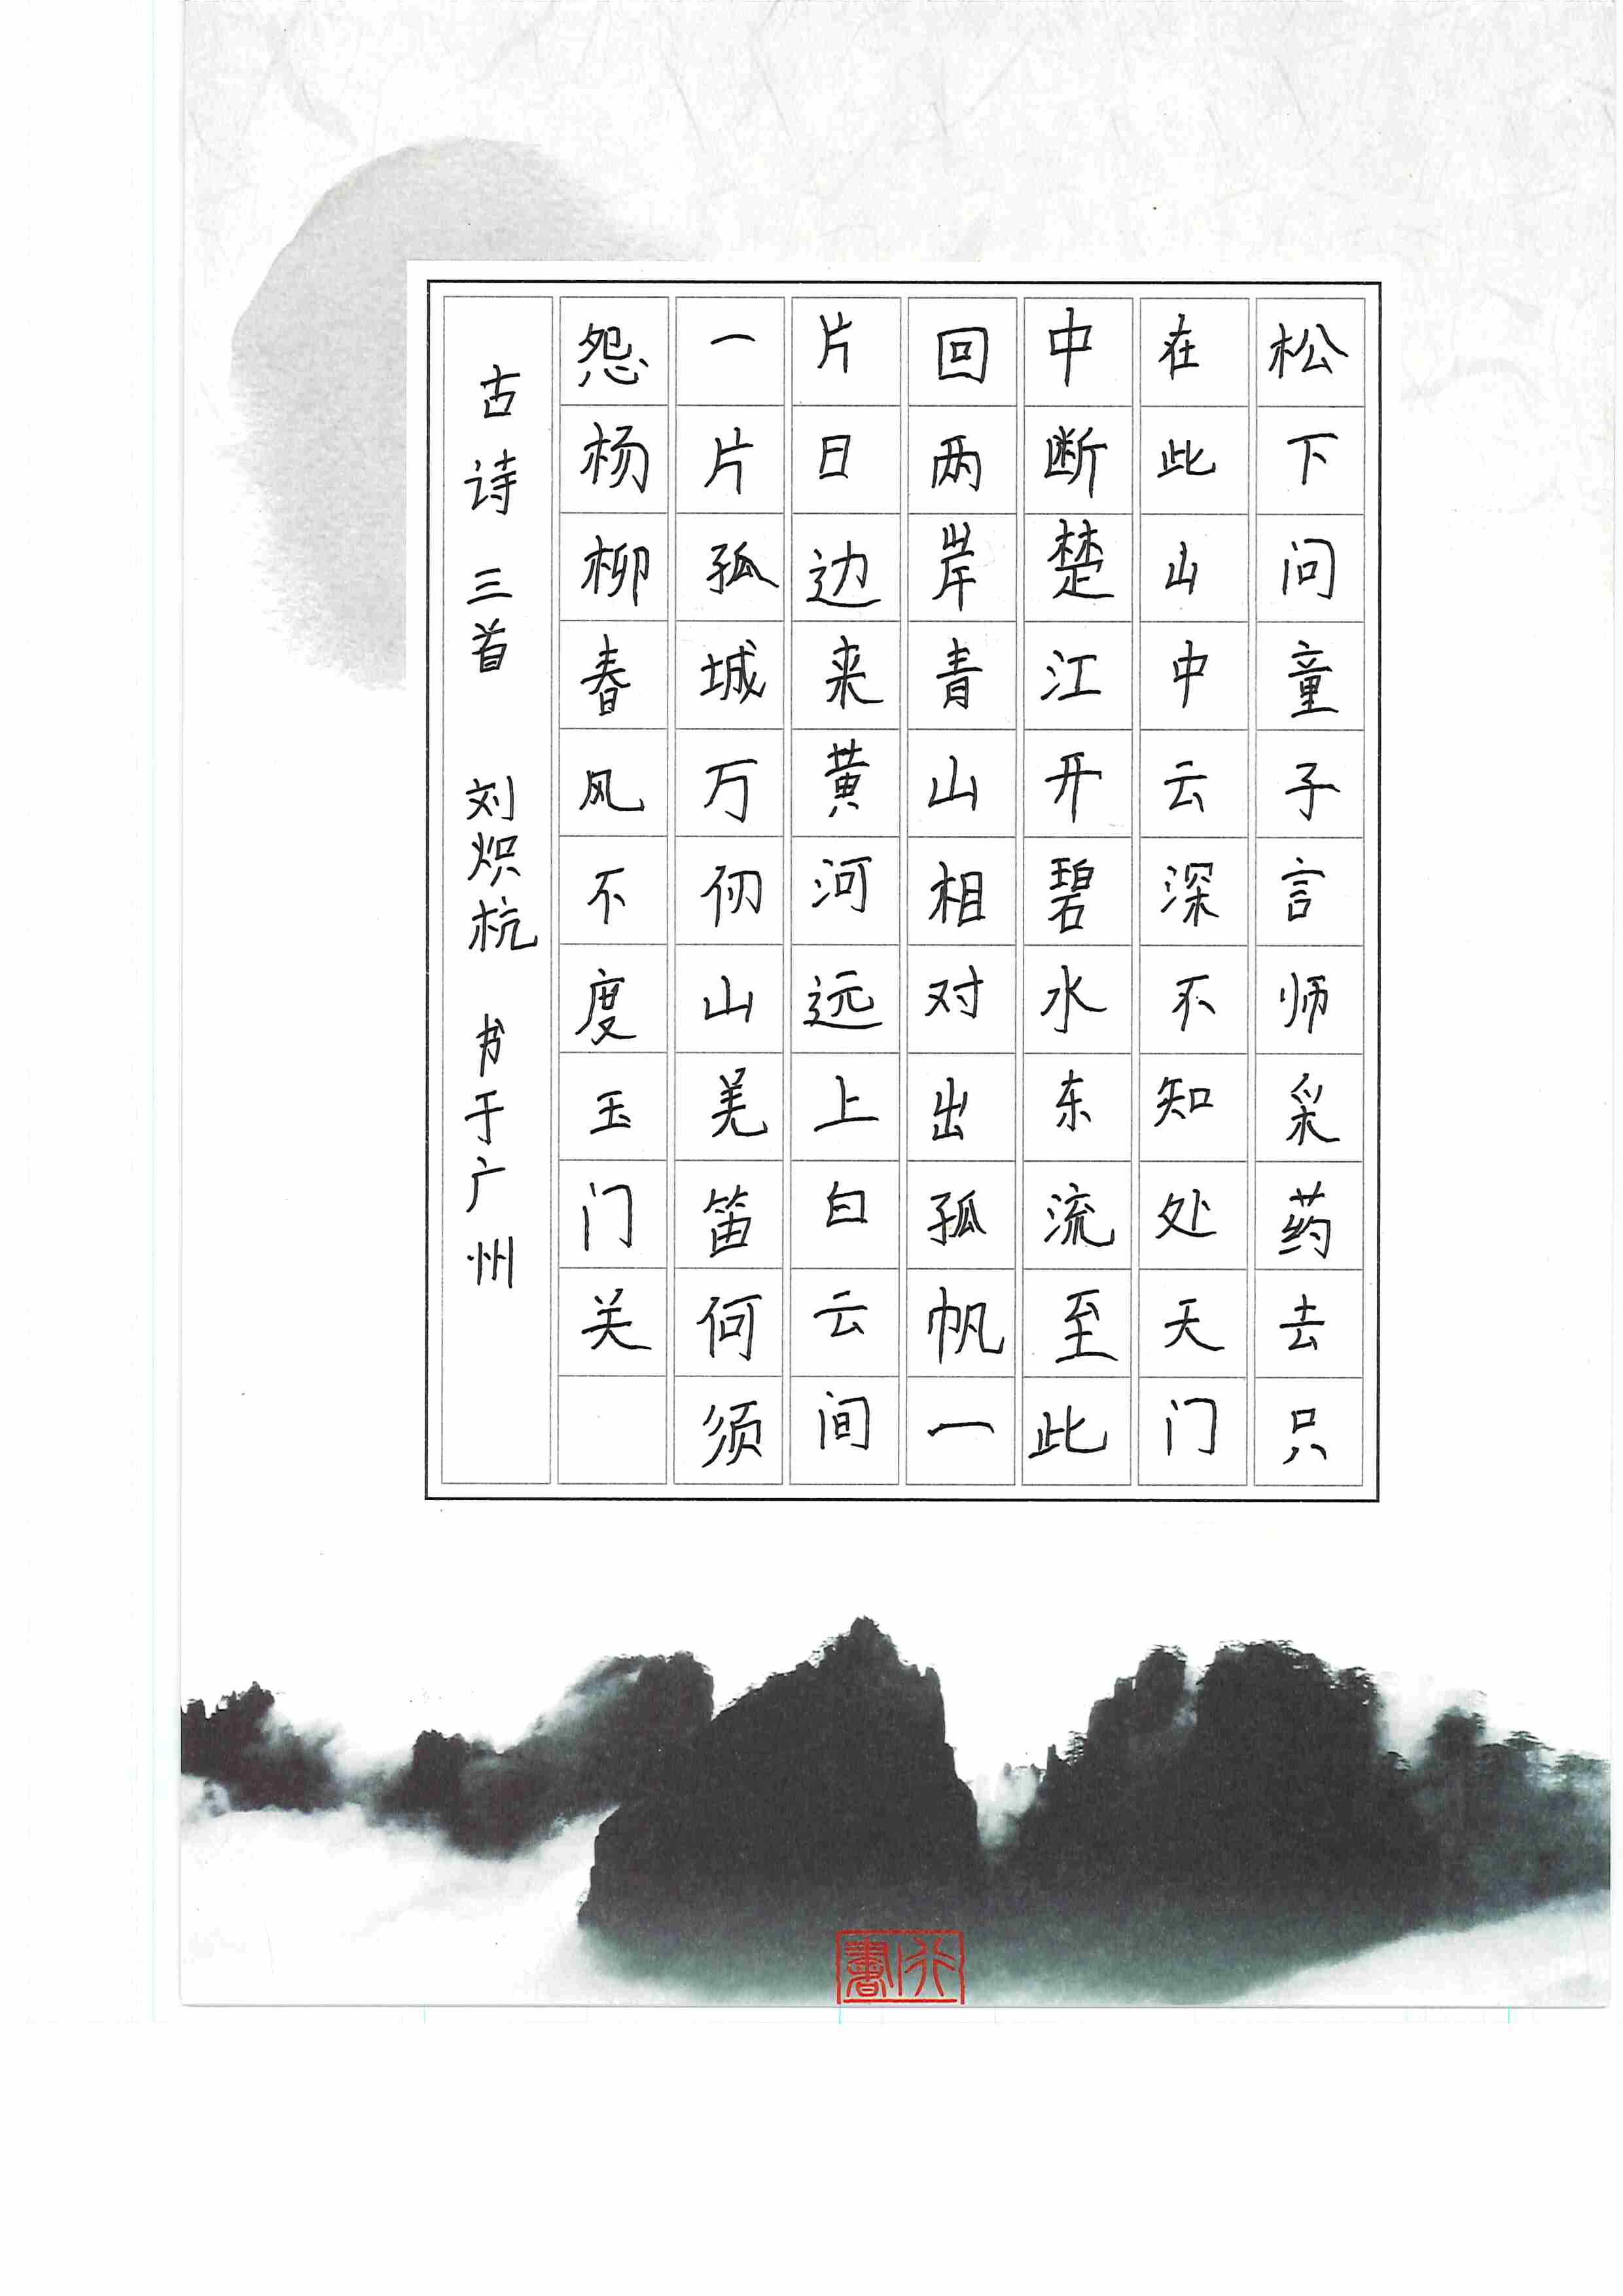 松下问童子言师采药去只
在此山中云深不知处天门
中断楚江开碧水东流至此
回两岸青山相对出孤帆一
片日边来黄河远上白云间
一片孤城万仞山羌笛何须
怨杨柳春风不度玉门关
古诗三首 刘炽杭 书于广州
行書